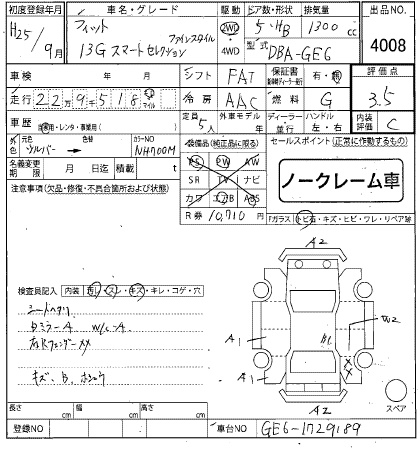 初度登録年月 車名・グレード 駆動 ドア数・形状 排気量 出品NO.
H25/9月 フィット ファインスタイル 2WD 5・HB 1300cc 4008
13G スマートセレクション 4WD 型式 DBA-GE6
車検 年 月 シフト FAT 保証書 有・無 評価点
走行 22万9千518 マイル 冷房 AAC 燃料 G 3.5
車歴 自家用・レンタ・事業用( ) 定員 5人 外車モデル 年 ディーラー 並行 ハンドル 左・右 内装評価 C
外色 元色 シルバー 色替 カラーNO NH700M
装備品(純正品に限る) セールスポイント(正常に作動するもの)
名義変更期限 月 日迄 積載 t
PS PW AW
SR TV ナビ
カワ エアB ABS
ノークレーム車
注意事項(欠品・修復・不具合箇所および状態)
R券 10,710 円
Fガラス トビ石・キズ・ヒビ・ワレ・リペア跡
A2
検査員記入 内装 汚レ・スレ・キズ・キレ・コゲ・穴
シートヘタリ
A W/C-A
フェンダーXX
キズ、B、
A1
W2
A1
XX
A2
スペア
長さ cm 幅 cm 高さ cm
登録NO 車台NO GE6-1729189